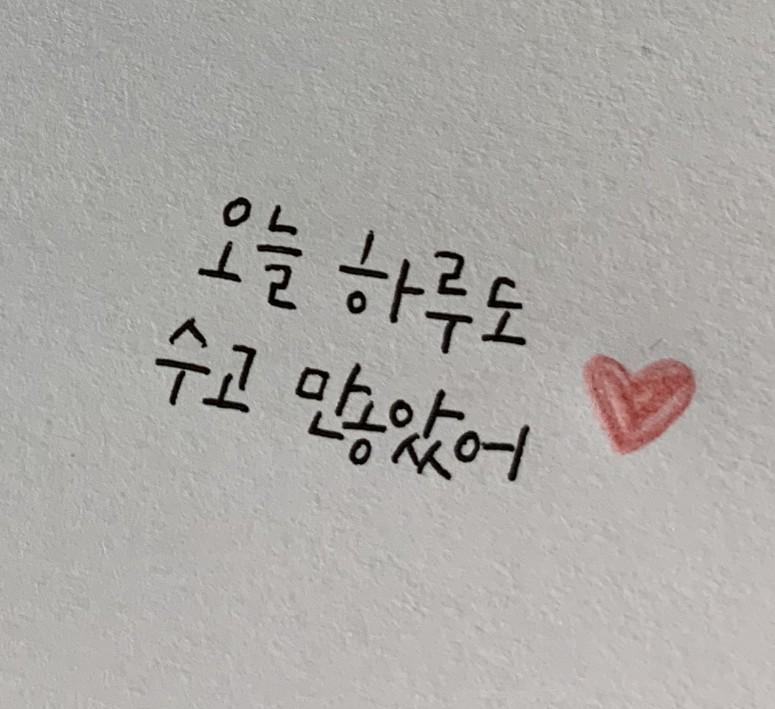 오늘 하루도
수고 많았어